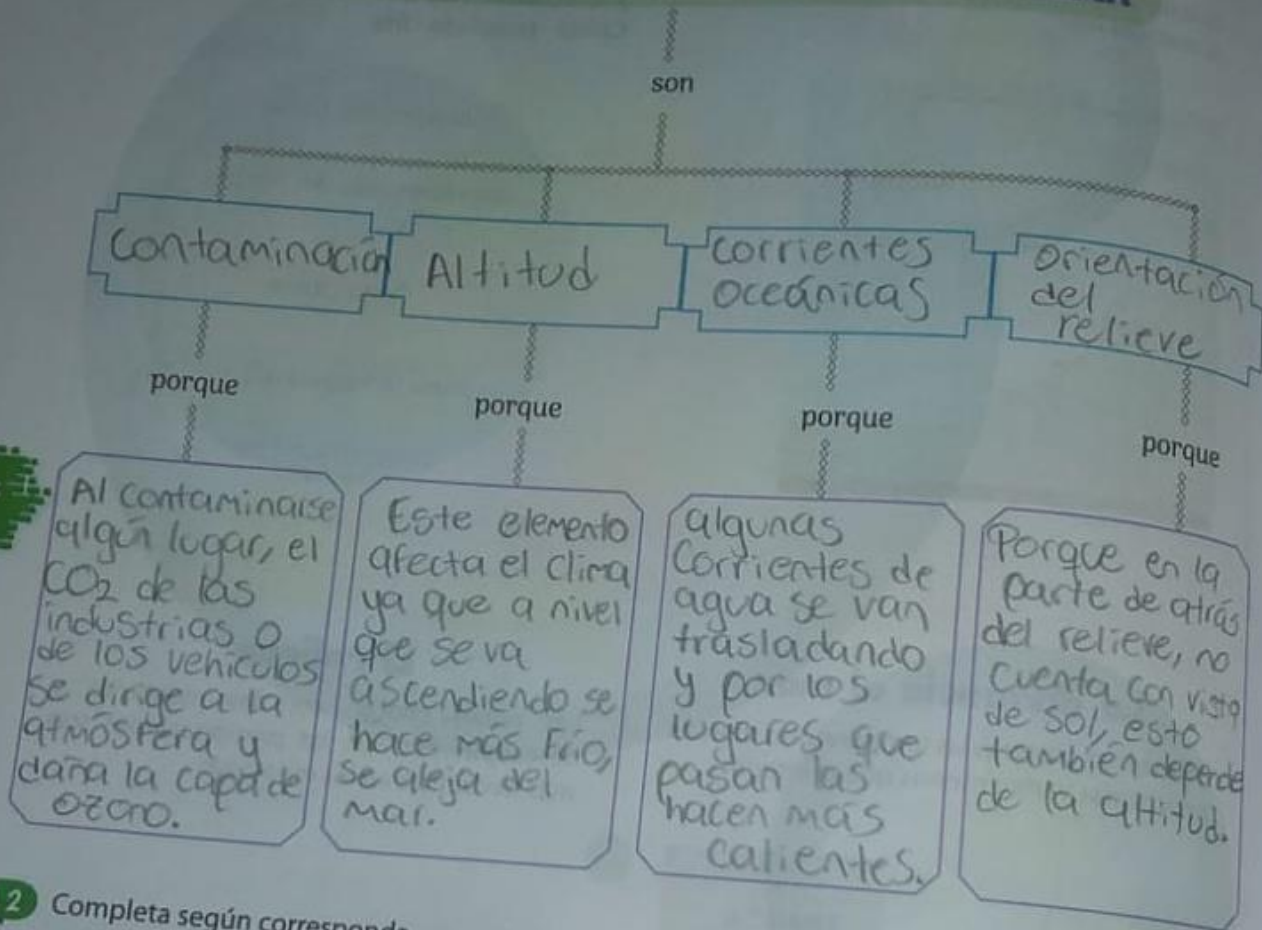 son
Contaminación
Altitud
corrientes
oceánicas
Orientación
del
relieve
porque
porque
porque
porque
Al contaminarse
algún lugar, el
CO2 de las
industrias o
de los vehículos
se dirige a la
atmósfera y
daña la capa de
ozono.
Este elemento
afecta el clima
ya que a nivel
que se va
ascendiendo se
hace más frío,
se aleja del
mar.
algunas
corrientes de
agua se van
trasladando
y por los
lugares que
pasan las
hacen más
calientes.
Porque en la
parte de atrás
del relieve, no
cuenta con vista
de sol, esto
también depende
de la altitud.
2 Completa según